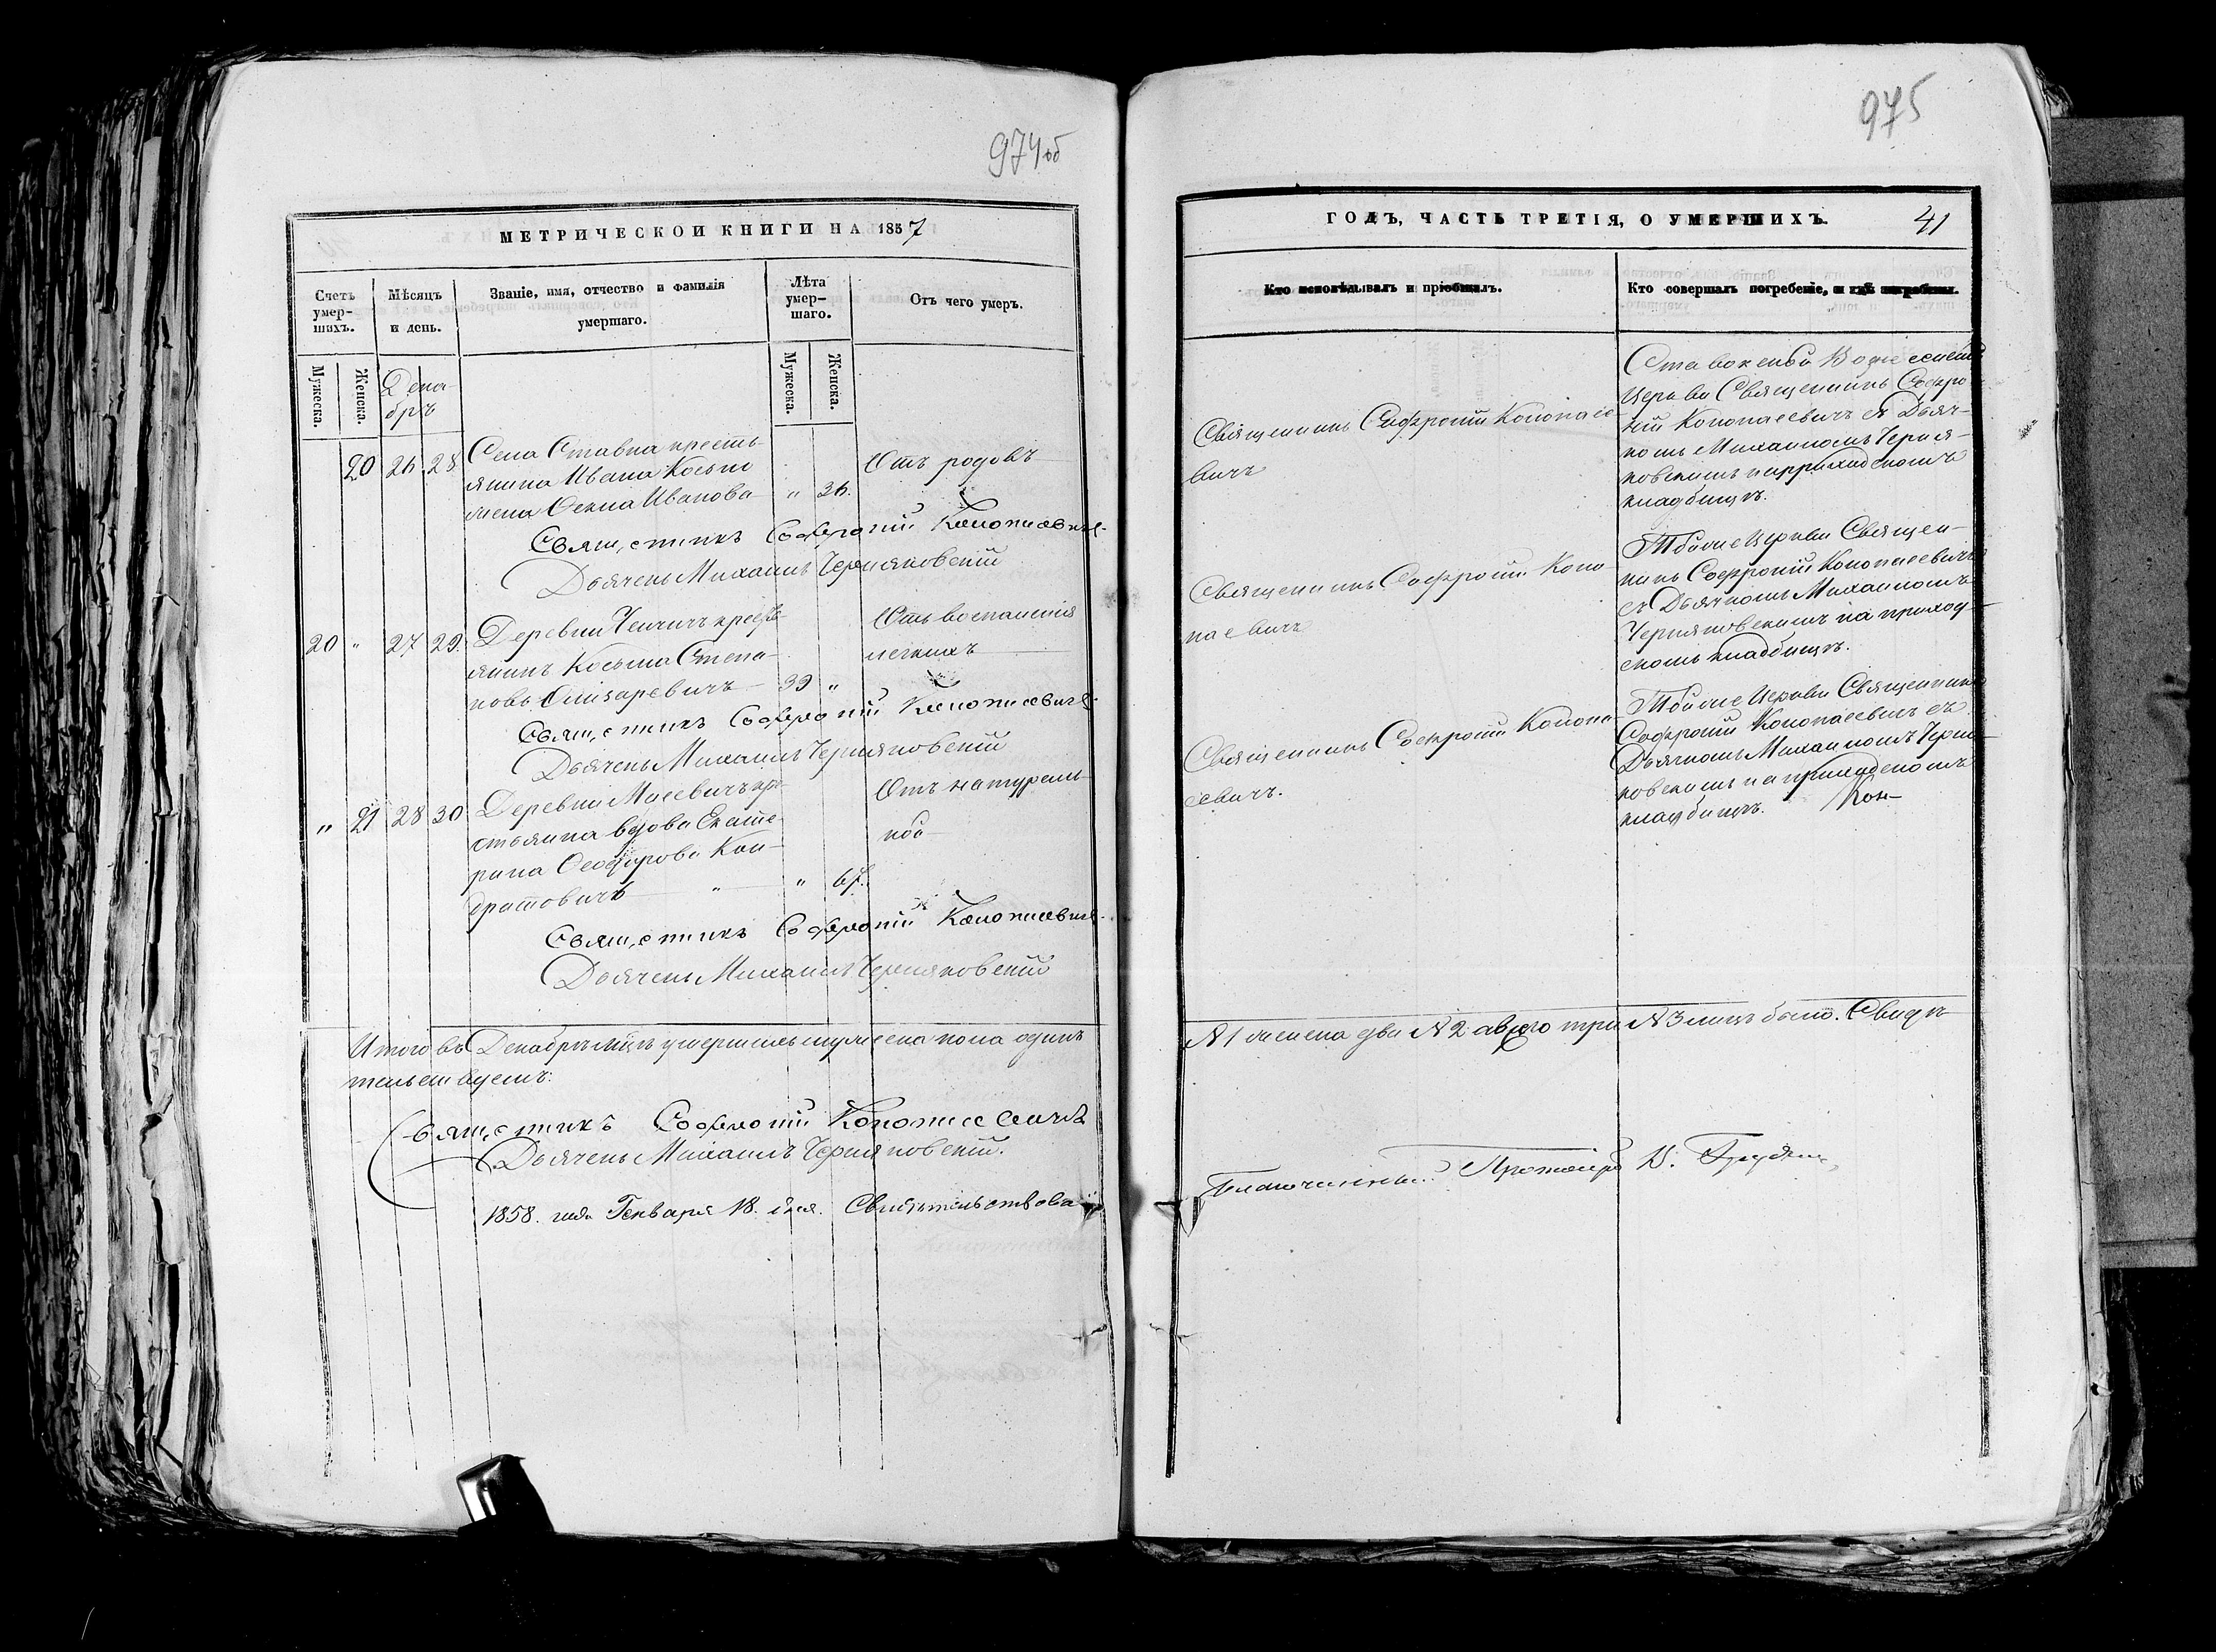 974об
МЕТРИЧЕСКОЙ КНИГИ НА 1857
Счетъ умер-шихъ.
Мѣсяцъ и день.
Званіе, имя, отчество и фамилія умершаго.
Лѣта умер-шаго.
Отъ чего умеръ.
Мужеска.
Женска.
Дека-
брь
Мужеска.
Женска.
20 26 28
Села Ставка кресть-
янина Ивана Косьмо
жена Ѳекла Иванова " 36.
Отъ родовъ
Священникъ Софроній Конопасевичъ
Дьячекъ Михаилъ Черняковскій
20 " 27 29.
Деревни кресть-
янинъ Косьма Степа-
новъ Олизаревичъ 39 "
Отъ воспаленія
легкихъ
Священникъ Софроній Конопасевичъ
Дьячекъ Михаилъ Черняковскій
" 21 28 30
Деревни Масевичъ кре-
стьянка вдова Екате-
рина Ѳеодорова Кон-
дратовичъ " " 67.
Отъ натураль-
ной
Священникъ Софроній Конопасевичъ
Дьячекъ Михаилъ Черняковскій
Итого въ Декабрѣ мцѣ умершихъ мужеска пола одинъ
тельствуемъ:
Священникъ Софроній Конопасевичъ
Дьячекъ Михаилъ Черняковскій.
1858. года Генваря 18. дня. Свидѣтельствовалъ
975
ГОДЪ, ЧАСТЬ ТРЕТІЯ, О УМЕРШИХЪ. 41
Кто исповѣдывалъ и пріобщалъ.
Кто совершалъ погребеніе, и гдѣ погребены.
Священникъ Софроній Конопасе-
вичъ
Ставокской Вознесенской
Церкви Священникъ Софро-
ній Конопасевичъ съ Дьяч-
комъ Михаиломъ Черня-
ковскимъ на приходскомъ
кладбищѣ.
Священникъ Софроній Коно-
пасевичъ
Тойже Церкви Священ-
никъ Софроній Конопасевичъ
съ Дьячкомъ Михаиломъ
Черняковскимъ на приход-
скомъ кладбищѣ.
Священникъ Софроній Конопа-
севичъ.
Тойже Церкви Священникъ
Софроній Конопасевичъ съ
Дьячкомъ Михаиломъ Черня-
ковскимъ на приходскомъ
кладбищѣ. Кон-
№ 1 женска два № 2 а всего три № 3 лицъ было. Свидѣ
Благочинный Протоіерей